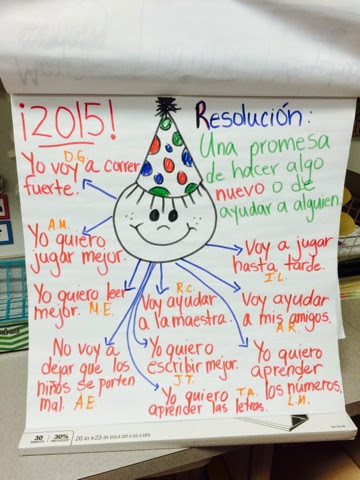 ¡2015!
Resolución:
Una promesa
de hacer algo
nuevo o de
ayudar a alguien.
D.G.
Yo voy a correr
fuerte.
A.M.
Yo quiero
jugar mejor.
Voy a jugar
hasta tarde.
I.L.
Yo quiero leer
mejor. N.E.
R.C.
Voy ayudar
a la maestra.
Voy ayudar
a mis amigos.
A.R.
No voy a
dejar que los
niños se porten
mal. A.E.
Yo quiero
escribir mejor.
J.T.
Yo quiero
aprender
los números.
L.N.
Yo quiero T.A.
aprender las letras.
30
30%
20 in x 23 in